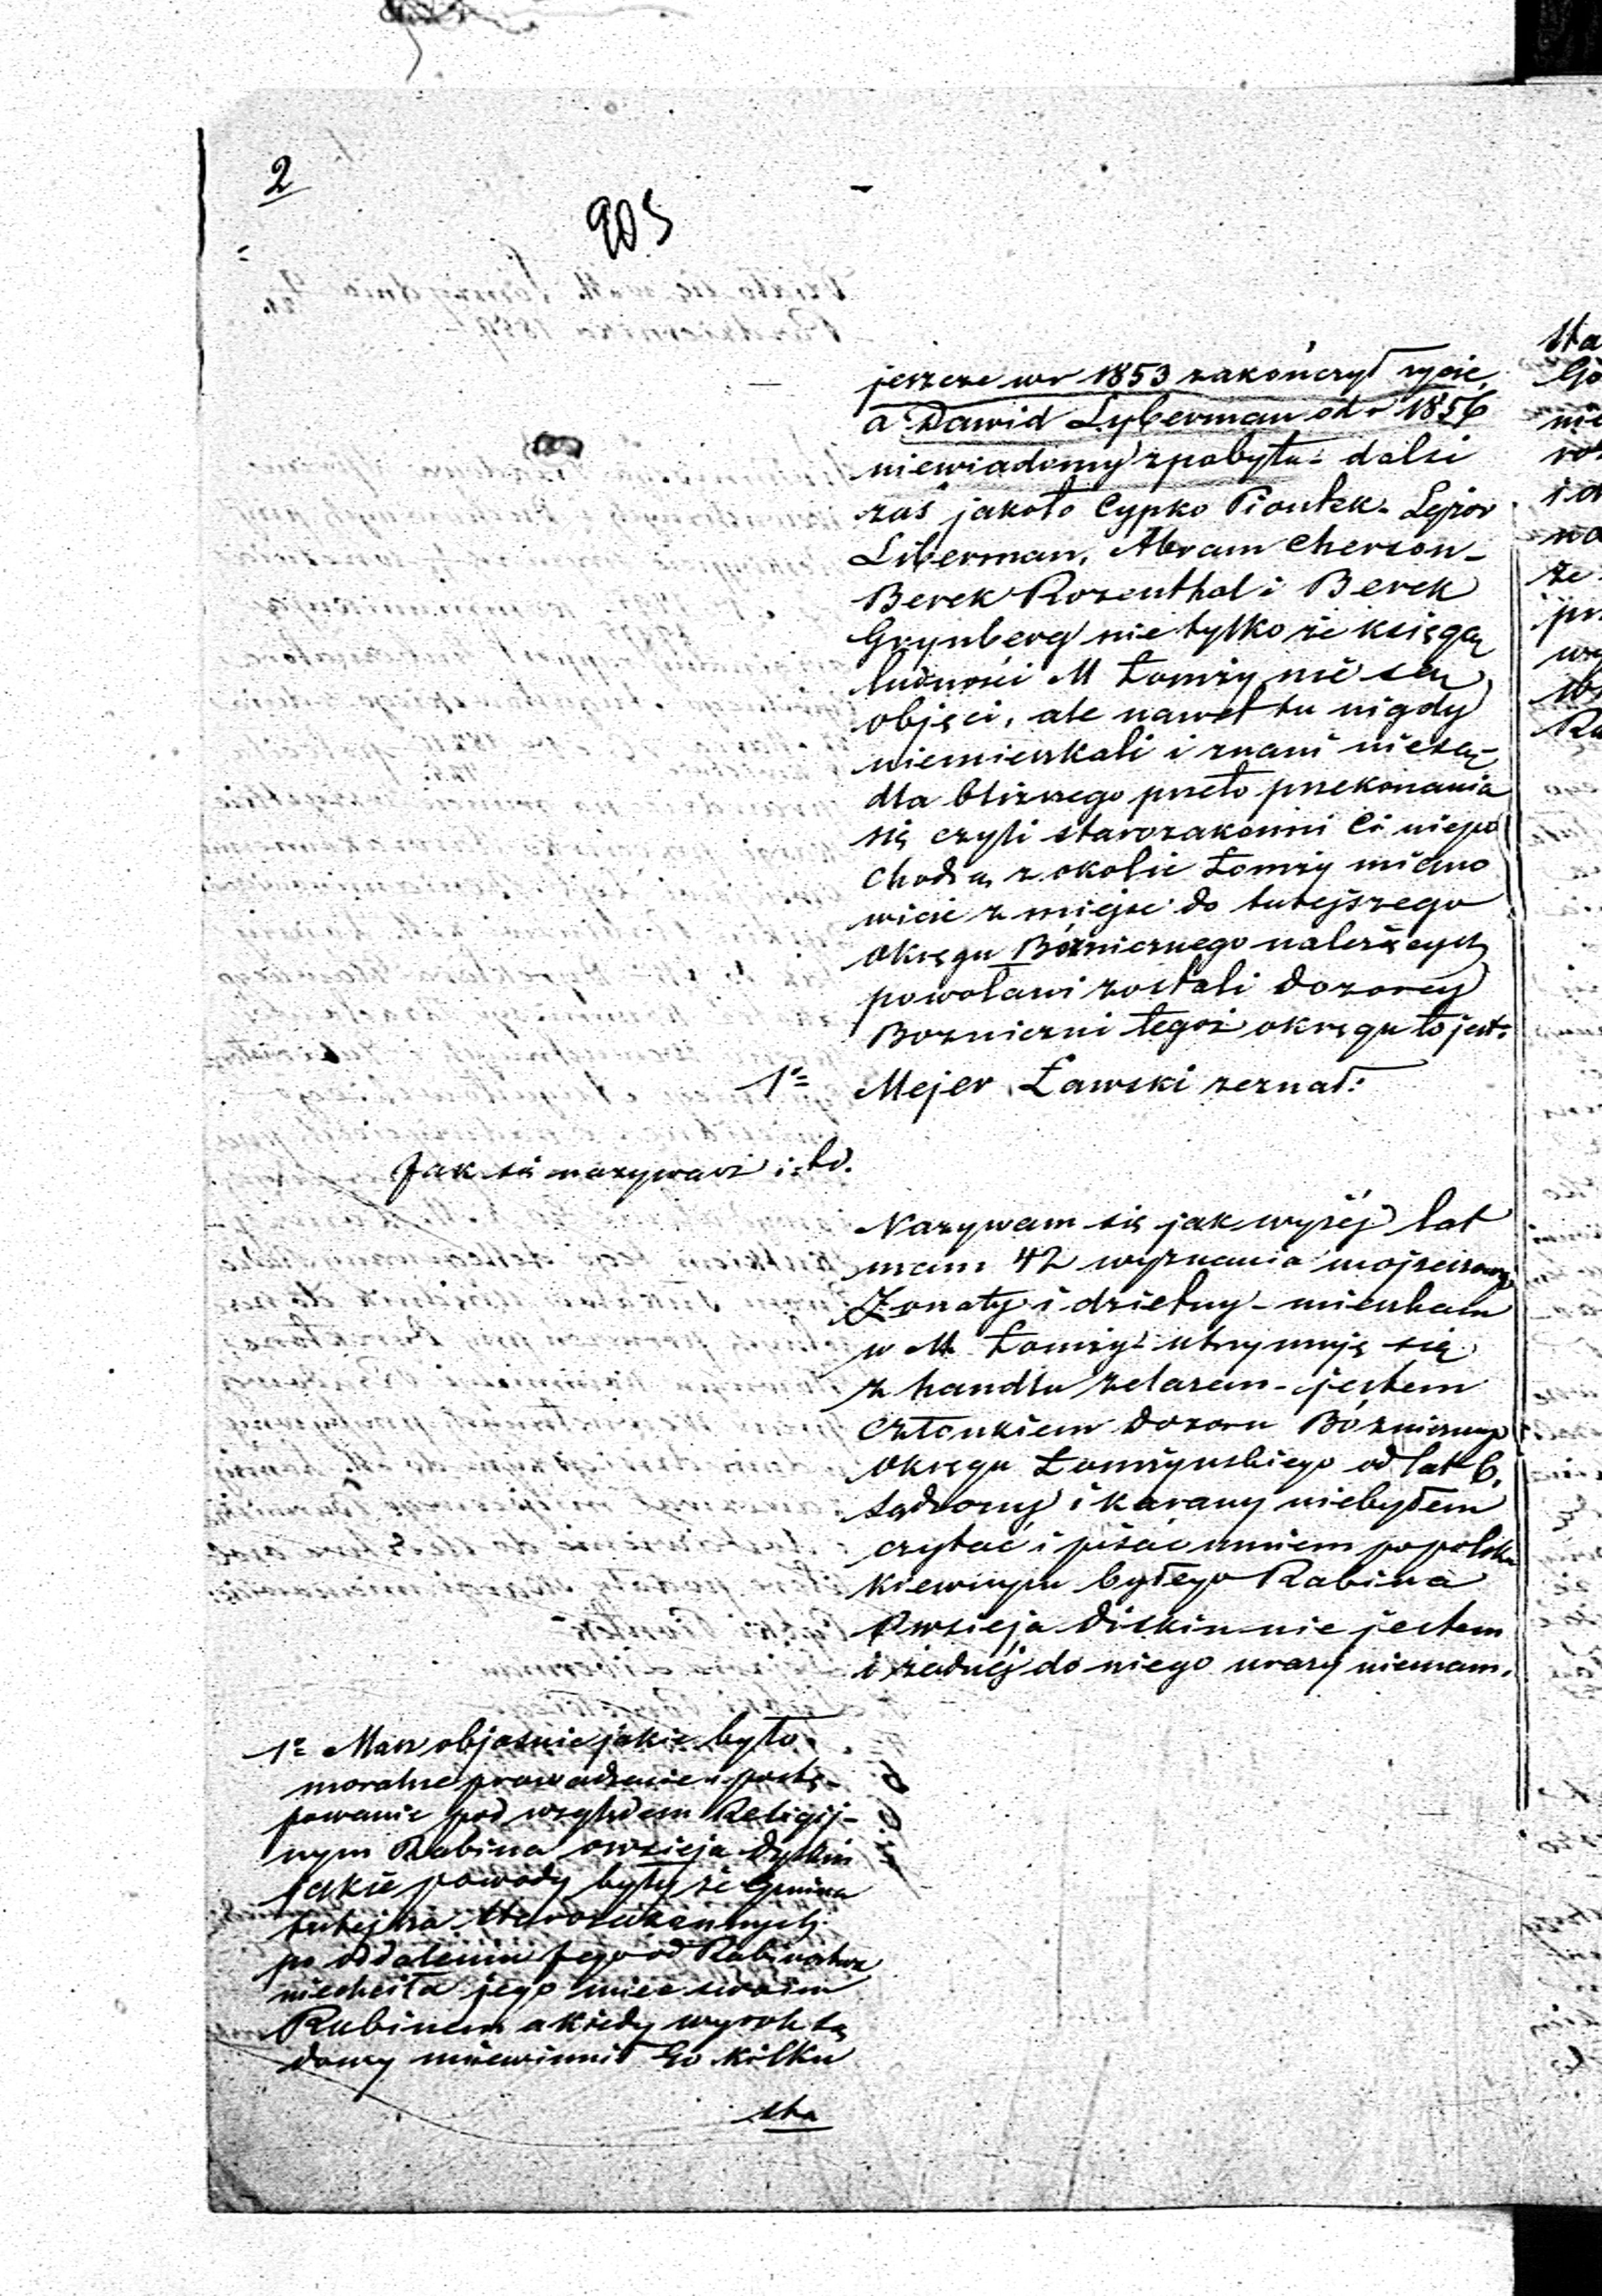 2
905
jeszcze w r 1853 zakończył życie,
a Dawid Lyberman od r 1856
niewiadomy z pobytu - dalsi
zaś jakoto Cypko Piontek - Lejzor
Liberman, Abram Cherson -
Berek Rozenthal i Berek
Grynberg nie tylko że księgą
ludności M Łomży nie są
objęci, ale nawet tu nigdy
niemieszkali i znani niesą -
dla bliższego przeto przekonania
się czyli starozakonni Ci niepo
chodzą z okolic Łomży miano
wicie z miejsc do tutejszego
okręgu Bóżnicznego należących
powołani zostali dozorcy
Bożniczni tegoż okręgu to jest:
1o Mejer Ławski zeznał:
Jak się nazywasz i td.
Nazywam się jak wyżéj lat
mam 42 wyznania mojżeszowego
Żonaty i dzietny - mieszkam
w M Łomży - utrzymuję się
z handlu żelazem - jestem
członkiem dozoru Bóżnicznego
okręgu Łomżyńskiego od lat 6,
sądzony i karany niebyłem
czytać i pisać umiem po polsku
krewnym byłego Rabina
Owsieja Diskin nie jestem
i żadnéj do niego urazy niemam.
1o Masz objaśnić jakie było
moralne prowadzenie i postę-
powanie pod względem Religij-
nym Rabina owsieja Dyskin
jakie powody były że Gmina
tutejsza Starozakonnych
po oddaleniu Jego od Rabinostwa
niechciła jego mieć swoim
Rabinem a kiedy wyrok są
dowy uniewinnił Go kilku
sta